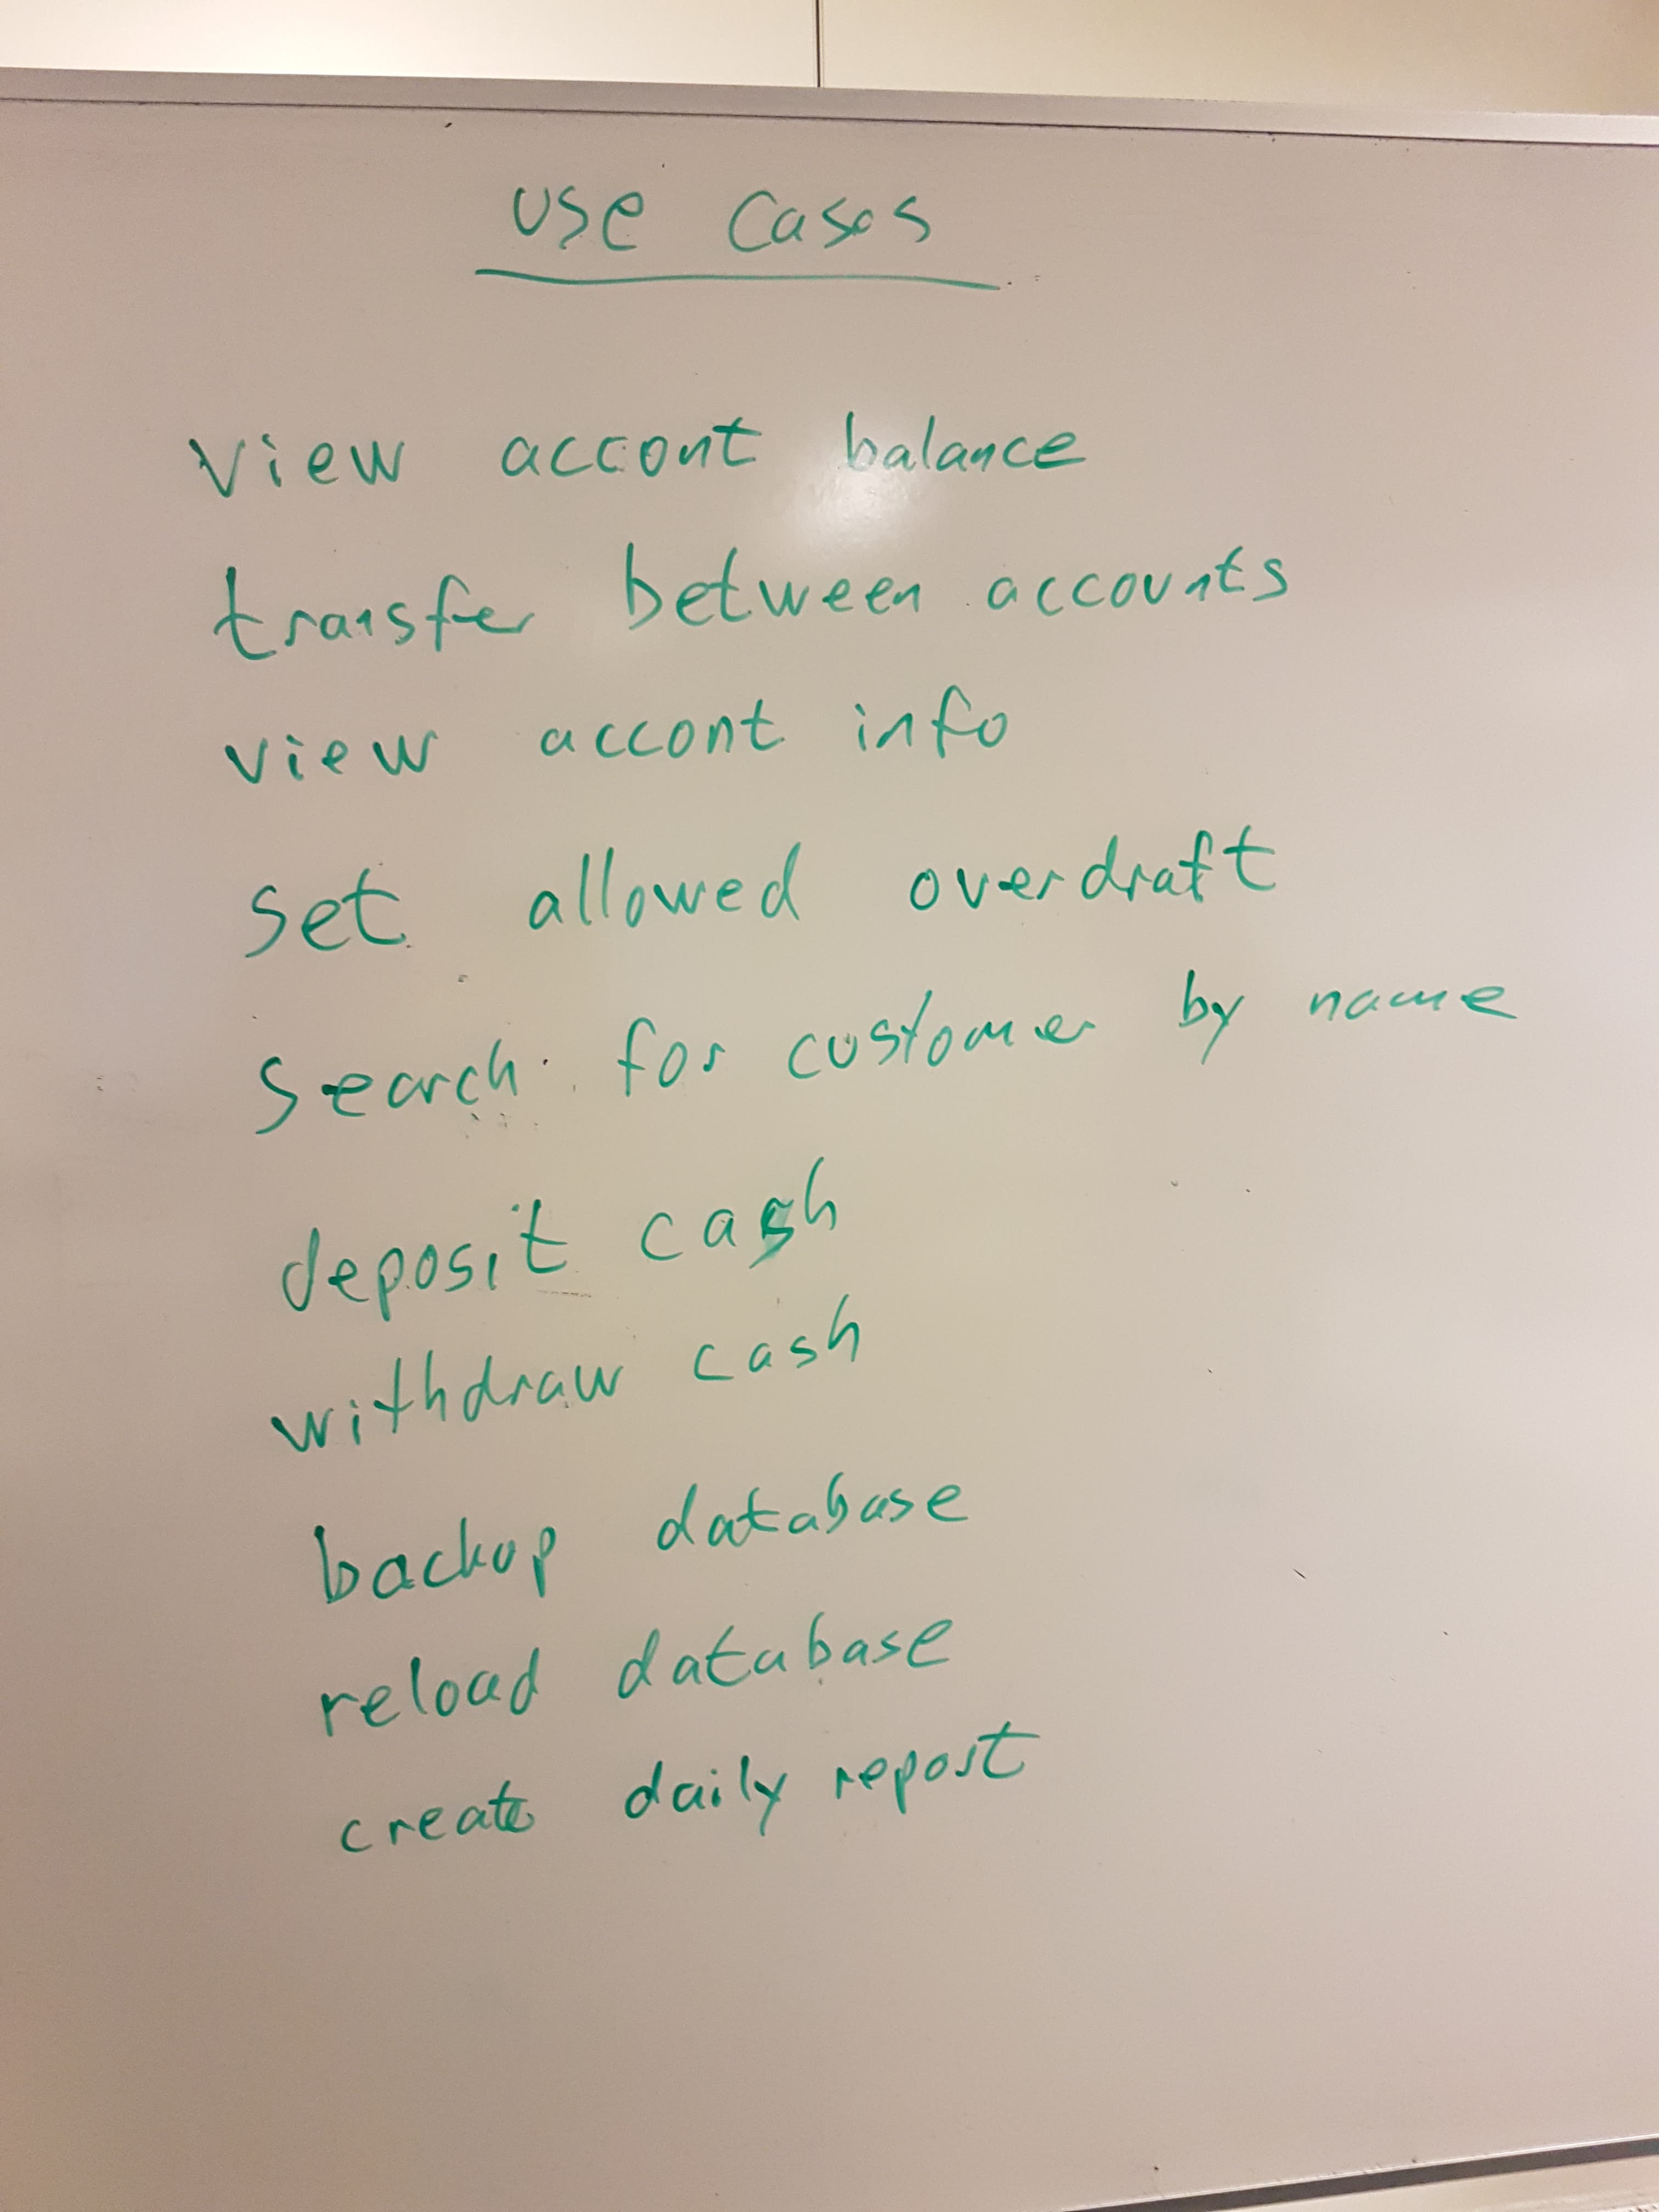 use cases
view accont balance
transfer between accounts
view accont info
set allowed overdraft
search for customer by name
deposit cash
withdraw cash
backup database
reload database
create daily report